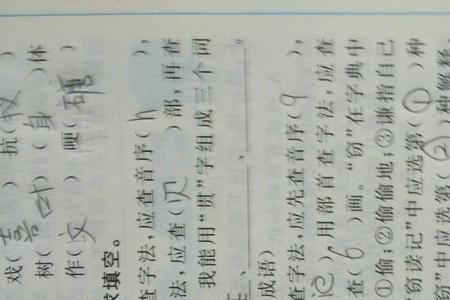 戏(喜) 抗(议)
树(叶) (身)体
作(文) 硬(糖)
求填空。
查字法,应查音序(h),
法,应查(贝)部,再查
我能用“货”字组成三个同
、 、 。
成语)
查字法,应先查音序(q),
)用部首查字法,应查
查(6)画。“窃”在字典中
①偷;②偷偷地;③谦指自己
窃读记”中应选第(①)种
窃”中应选第(②)种解释。